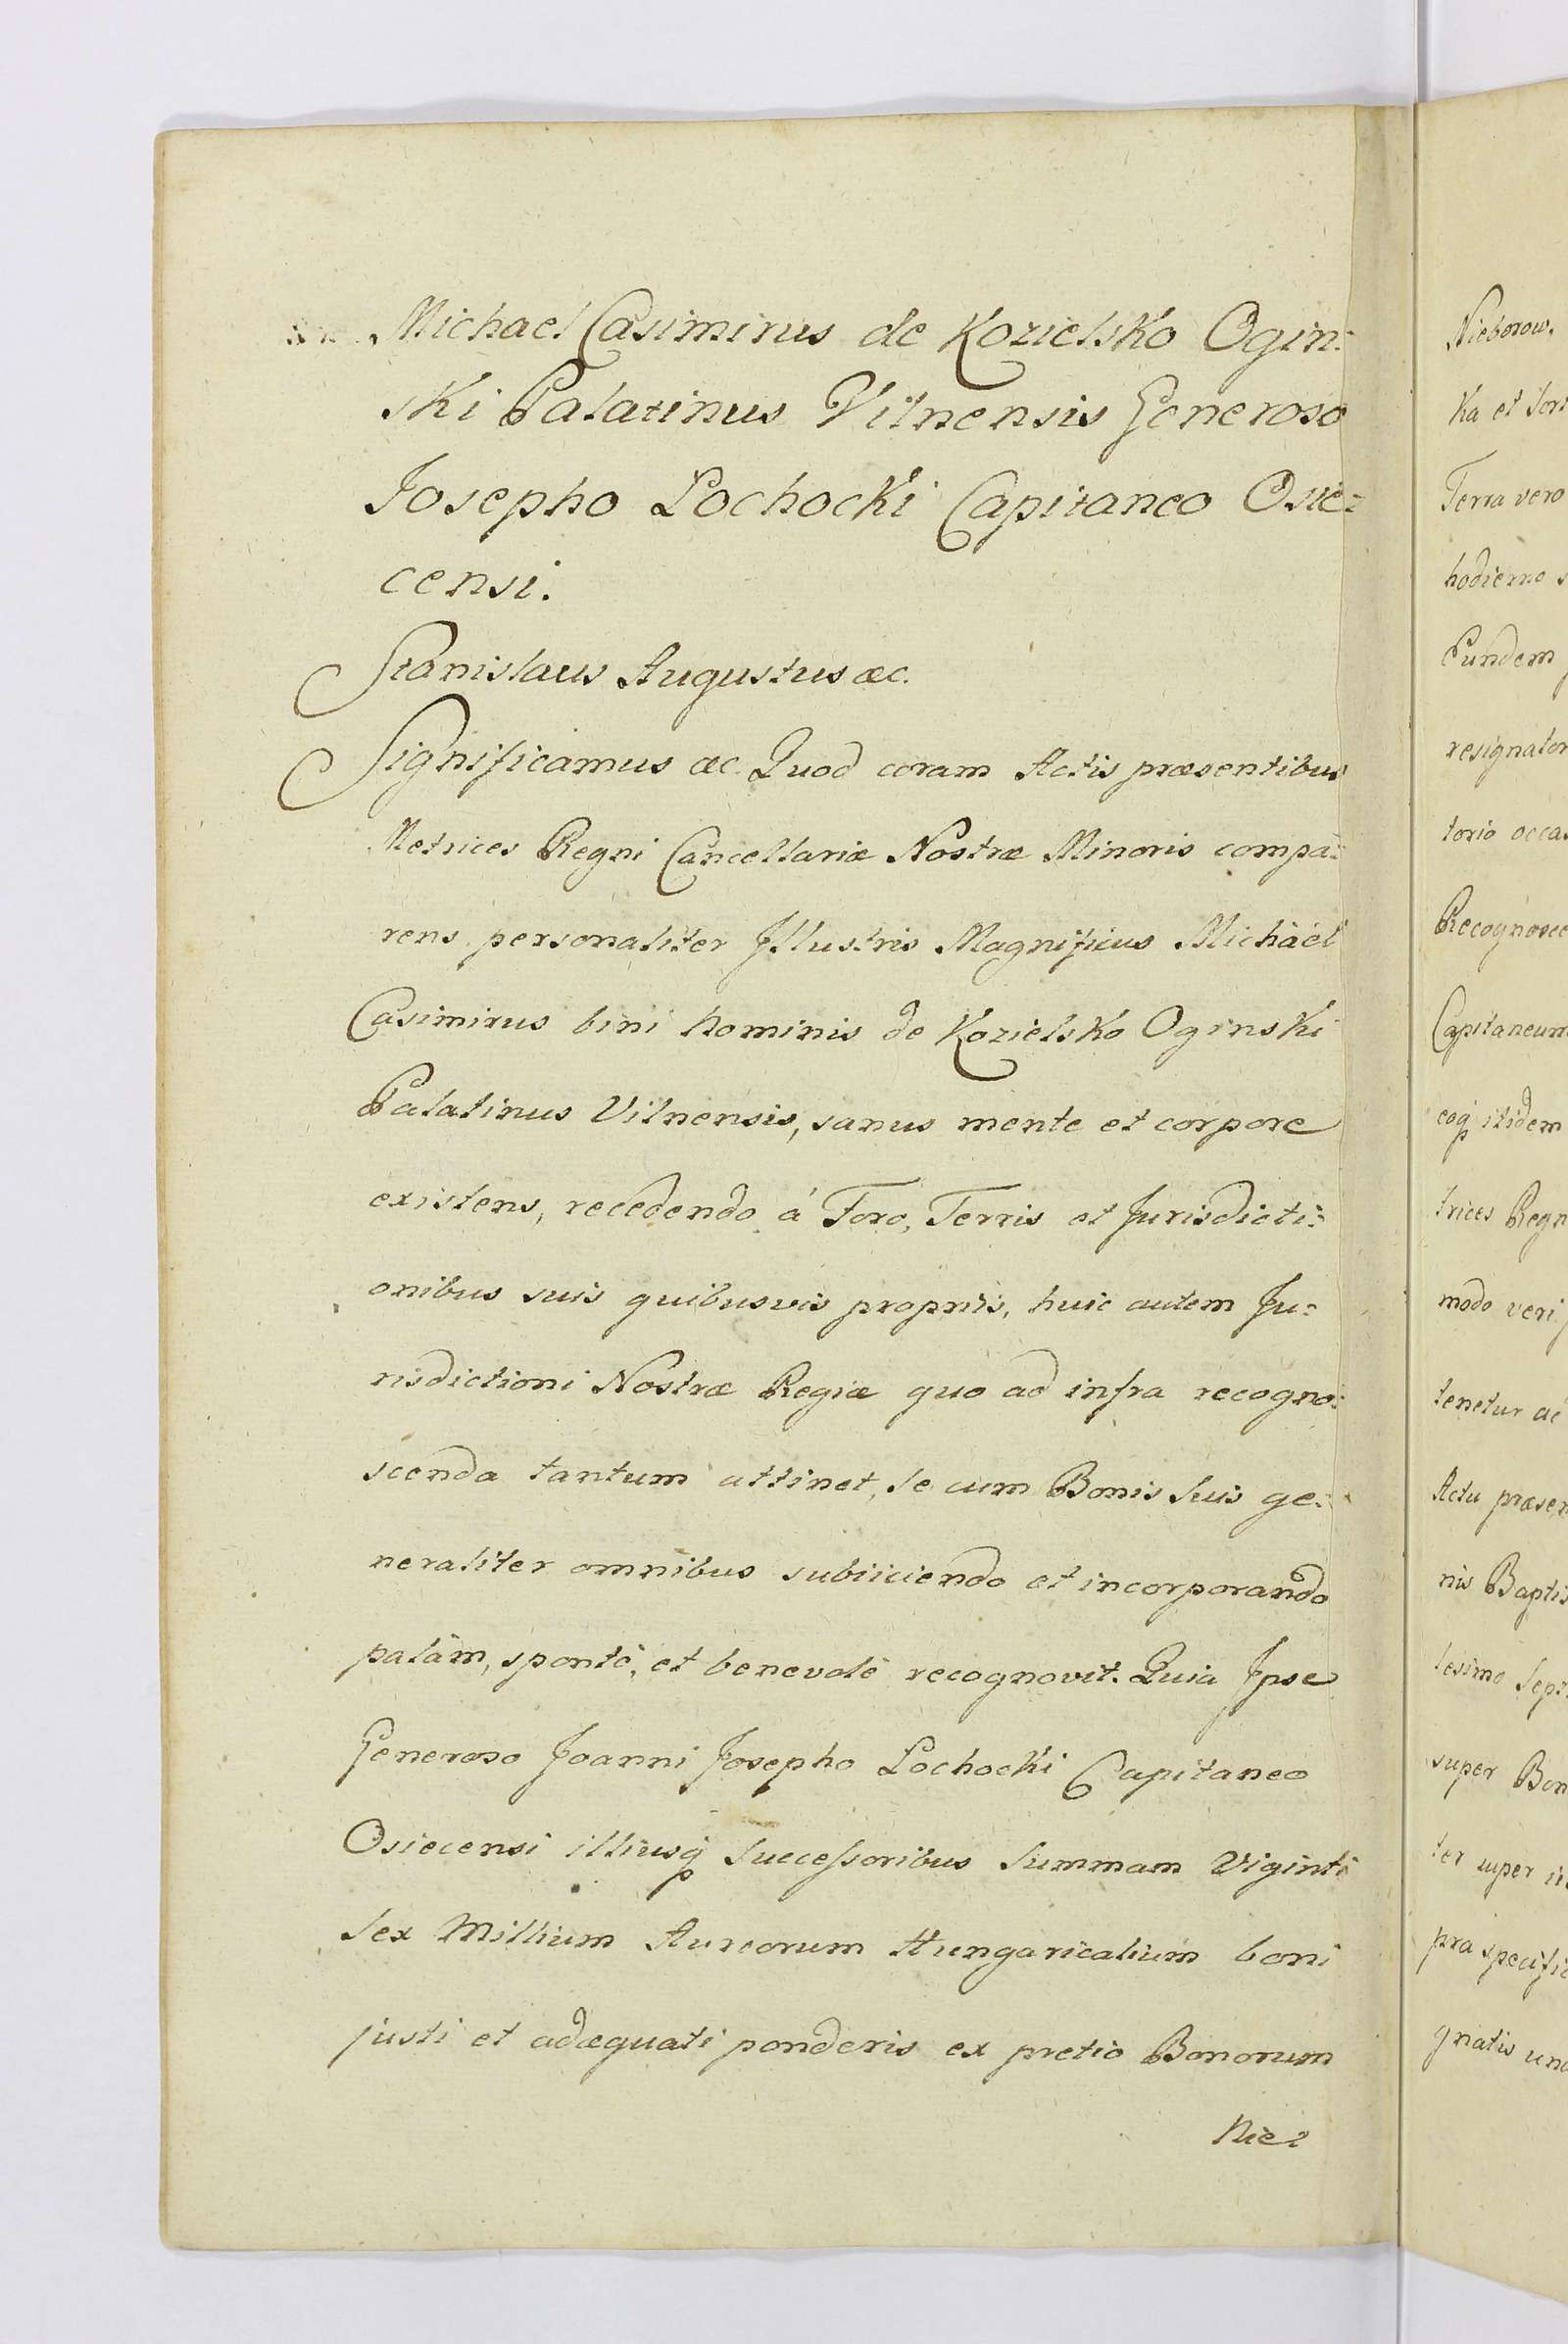 Michael Casimirus de Kozielsko Ogin:
ski Palatinus Vilnensis Generoso
Josepho Lochocki Capitaneo Osie:
censi.
Stanislaus Augustus æc.
Significamus æc. Quod coram Actis præsentibus
Metrices Regni Cancellariæ Nostræ Minoris compa:
rens personaliter Jllustris Magnificus Michaël
Casimirus bini Nominis de Kozielsko Oginski
Palatinus Vilnensis, sanus mente et corpore
existens, recedendo á Foro, Terris et Jurisdicti:
onibus suis quibusvis proprijs, huic autem Ju:
risdictioni Nostræ Regiæ quo ad infra recogno:
scenda tantum attinet, Se cum Bonis Suis ge:
neraliter omnibus subiiciendo et incorporando
palàm, spontè, et benevolè recognovit. Quia Jpse
Generoso Joanni Josepho Lochocki Capitaneo
Osiecensi illiusq Successoribus Summam Viginti
Sex Millium Aureorum Hungaricalium boni
justi et adæquati ponderis ex pretio Bonorum
Nie:
Nieborow.
Ka et
Terra vero
hodierno
Eundem
resignator
torio occas
Recognosce
Capitaneum
eoq itidem
trices Regn
modo veri
tenetur ac
Actu præsen
nis Baptis
lesimo Sept
super Bon
ter super
pra specific
gnatis una